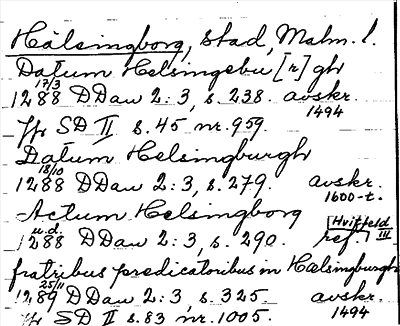 Hälsingborg, stad, Malm. l.
Datum Helsingebu[r]gh
17/3
1288 DDan 2:3, s. 238. avskr.
1494
Jfr SD II s. 45 nr. 959.
Datum Helsingburgh
18/10
1288 DDan 2:3, s. 279. avskr.
1600-t.
Actum Helsingborg
u.d.
1288 DDan 2:3, s. 290. ref. [Hvitfeld III]
fratribus predicatoribus in Hælsingburgh
25/11
1289 DDan 2:3, s. 325 avskr.
1494
Jfr SD II s. 83 nr. 1005.